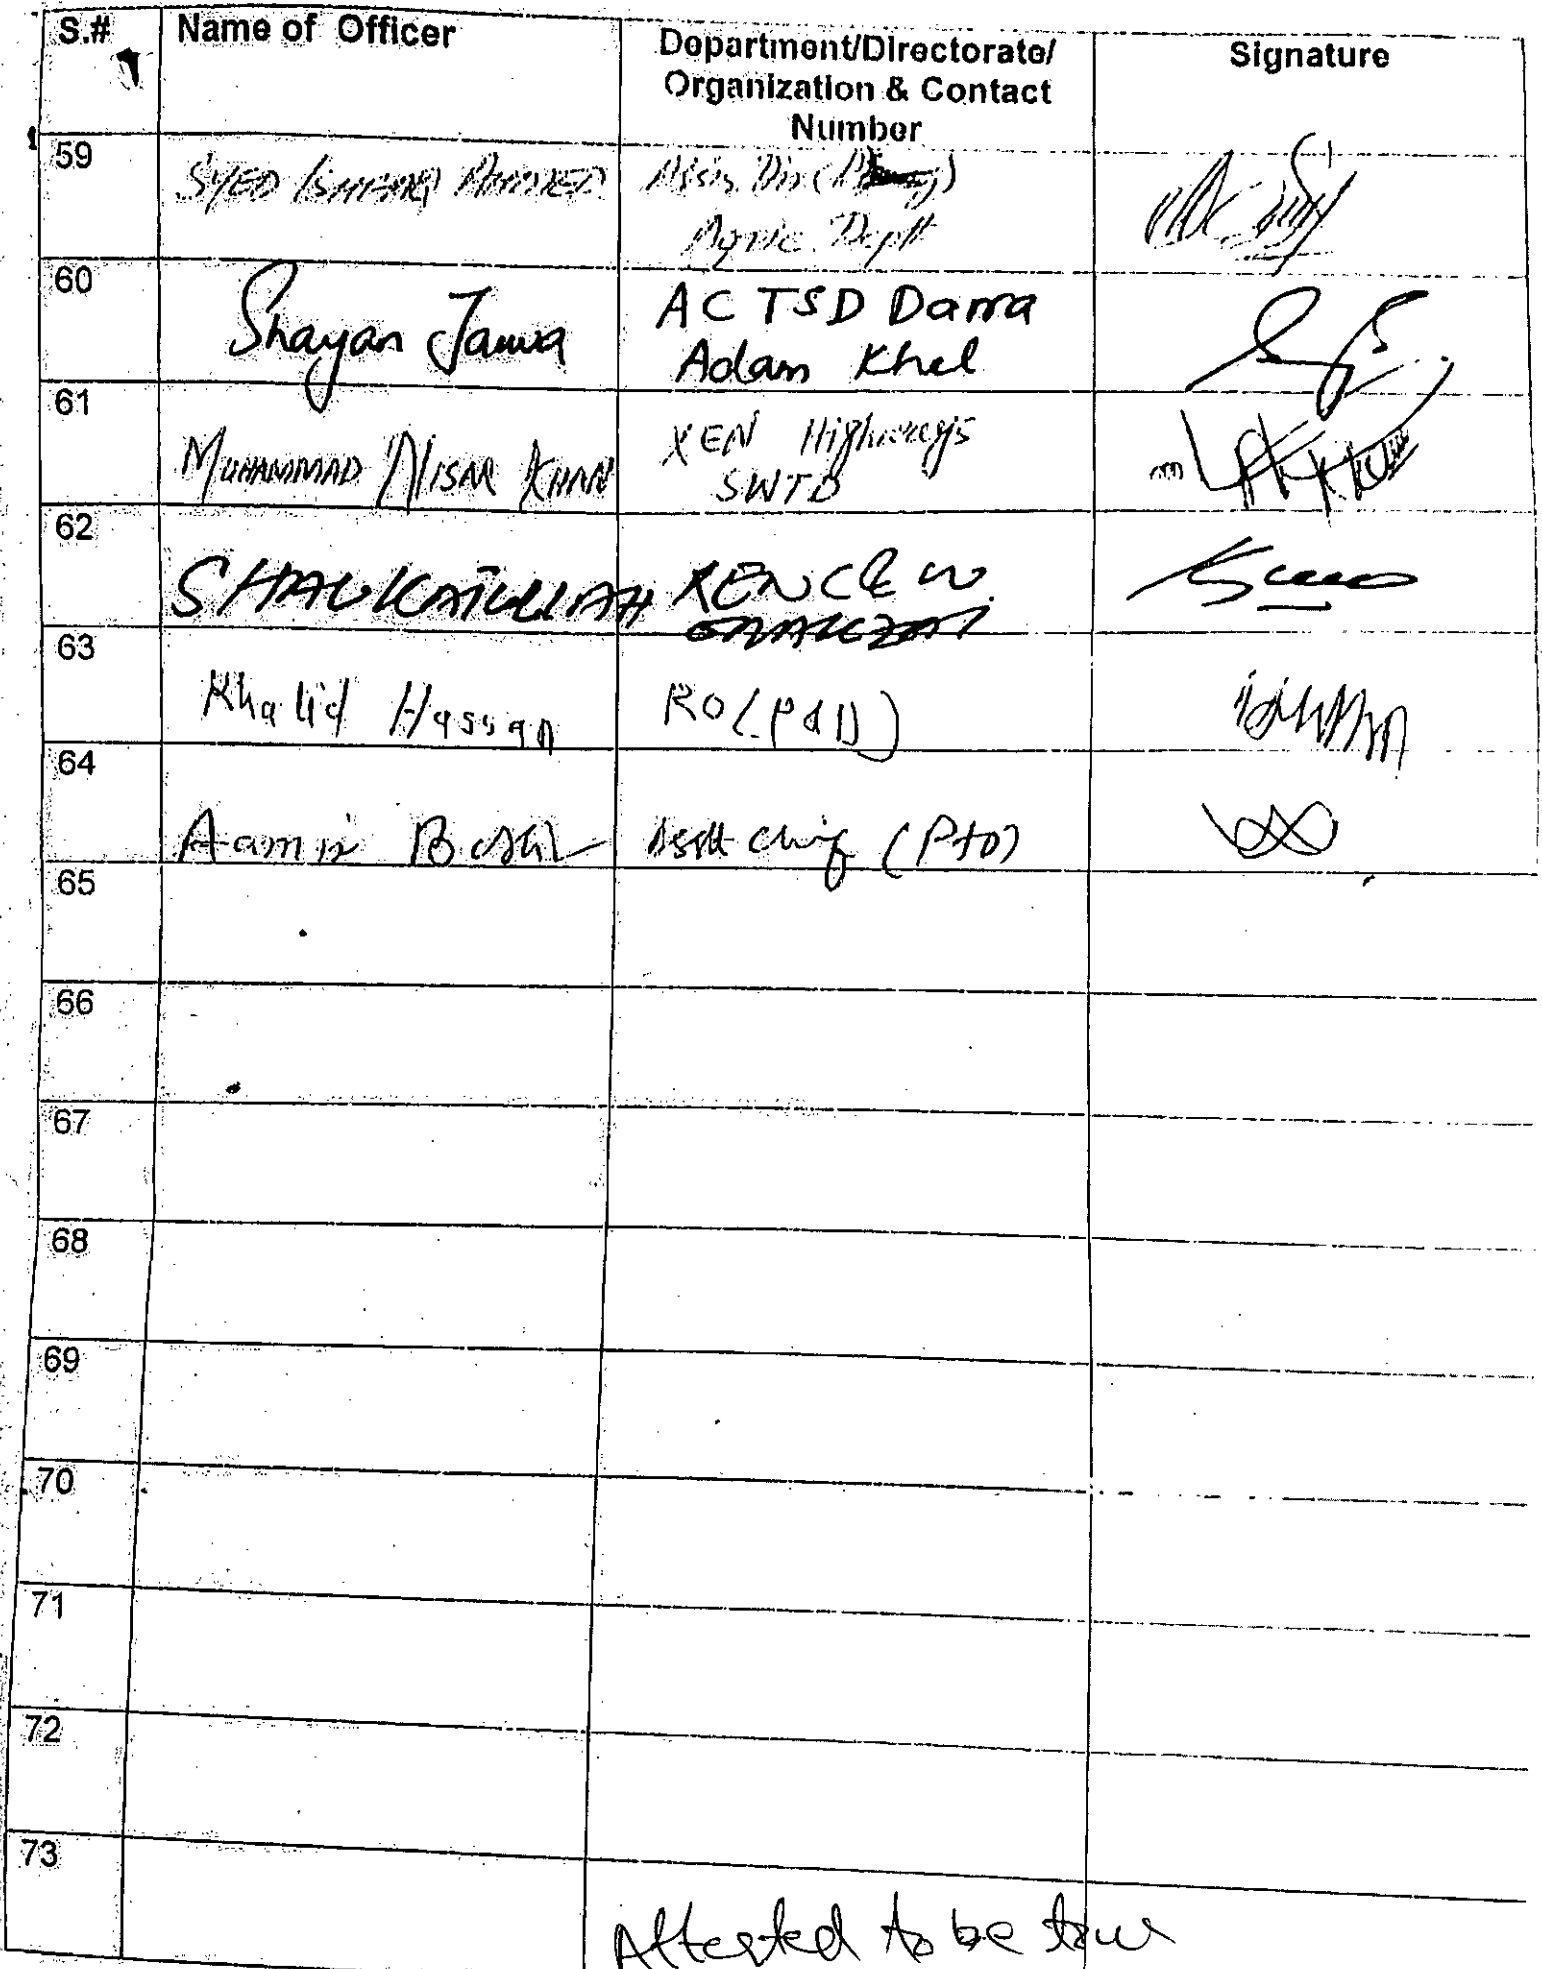 S.# Name of Officer Department/Directorate/
Organization & Contact
Number Signature
59 SYED ISHFAQ AHMED Assis Dir
Agric Deptt
60 Shayan AC TSD Darra
Adam Khel
61 MUHAMMAD NISAR KHAN XEN Highways
SWTD
62 SHAUKATULLAH XEN C&W
ORAKZAI
63 Khalid Hassan RO (P&D)
64 Aamir Asstt Chief (P&D)
65
66
67
68
69
70
71
72
73
Attested to be true